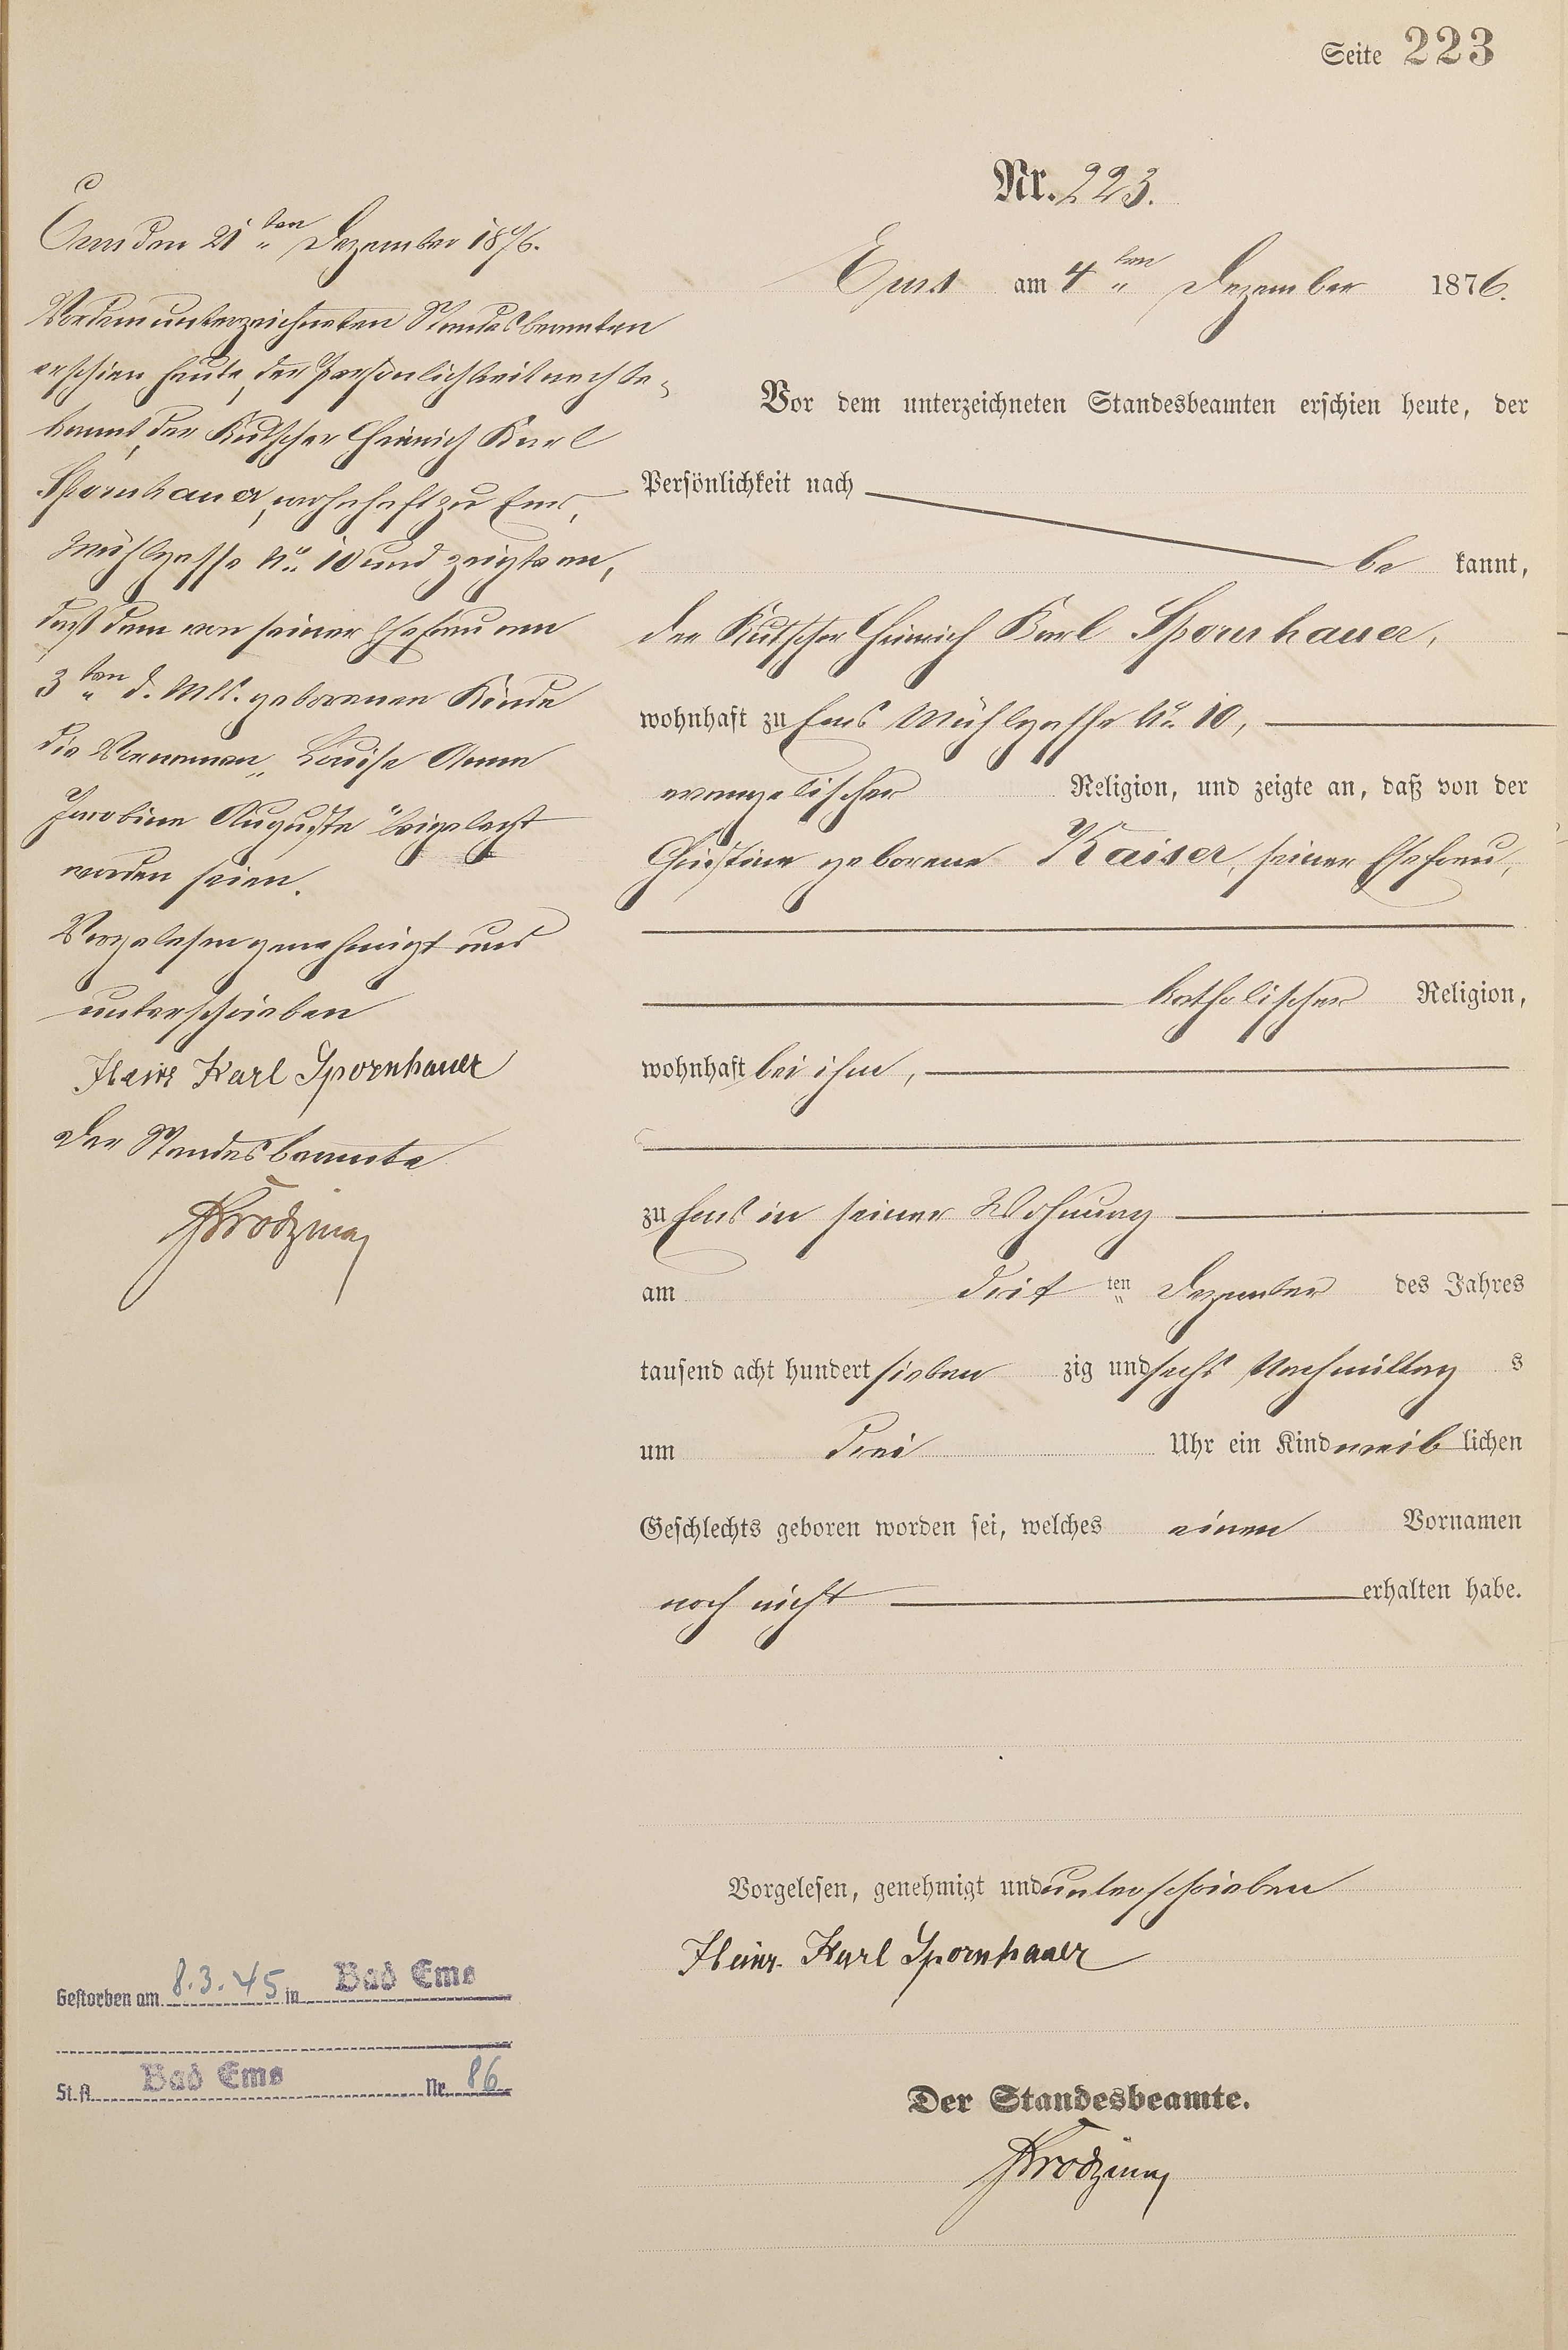 Seite 223
Nr. 223.
Ems am 4ten Dezember 1876.
Vor dem unterzeichneten Standesbeamten erschien heute, der
Persönlichkeit nach
be kannt,
der Kutscher Heinrich Karl Spornhauer,
wohnhaft zu Ems Mühlgasse No. 10,
evangelischer Religion, und zeigte an, daß von der
Christine geborene Kaiser, seiner Ehefrau,
katholischer Religion,
wohnhaft bei ihm,
zu Ems in seiner Wohnung
am dritten Dezember des Jahres
tausend acht hundert sieben zig und sechs Nachmittag s
um drei Uhr ein Kind weib lichen
Geschlechts geboren worden sei, welches einen Vornamen
noch nicht erhalten habe.
Vorgelesen, genehmigt und unterschrieben
Heinr. Karl Spornhauer
Der Standesbeamte.
Ems den 21ten Dezember 1876.
Vor dem unterzeichneten Standesbeamten
erschien heute, der Persönlichkeit nach be-
kannt, der Kutscher Heinrich Karl
Spornhauer, wohnhaft zu Ems,
Mühlgasse No. 10 und zeigte an,
daß dem von seiner Ehefrau am
3ten d. Mts. geborenen Kinde
die Vornamen „Louise Anna
Jacobine Auguste“ beigelegt
worden seien.
Vorgelesen genehmigt und
unterschrieben
Heinr Karl Spornhauer
Der Standesbeamte
Gestorben am 8.3.45 in Bad Ems
St.A. Bad Ems Nr. 86